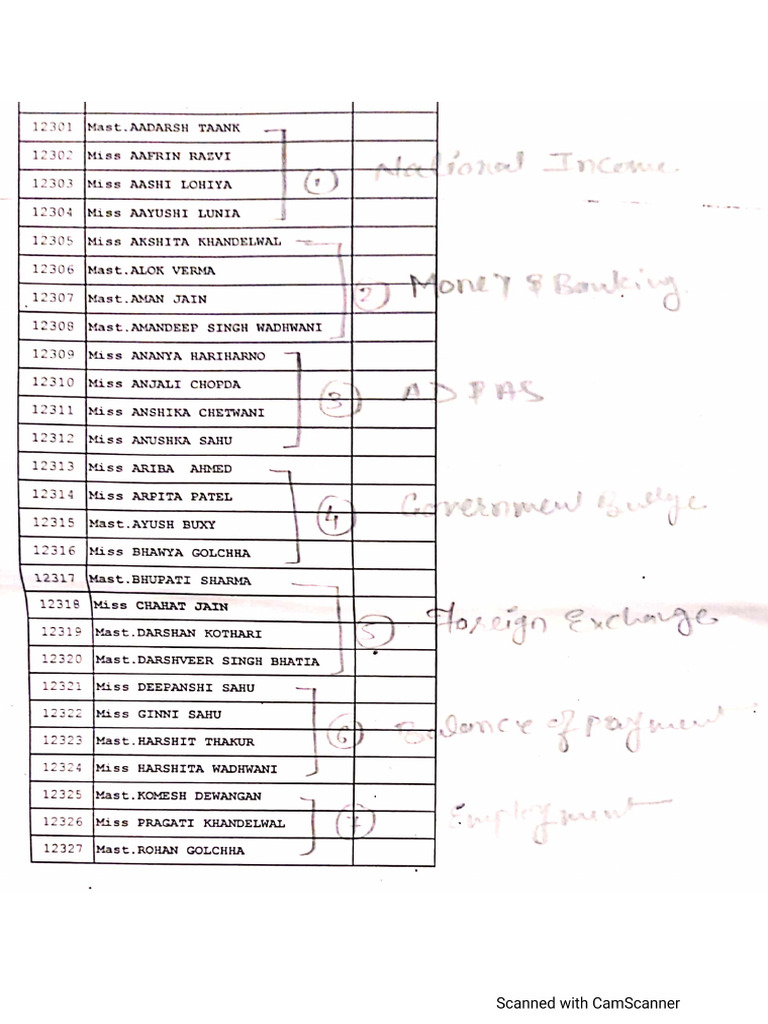 12301 Mast.AADARSH TAANK
12302 Miss AAFRIN RAZVI
12303 Miss AASHI LOHIYA ① National Income
12304 Miss AAYUSHI LUNIA
12305 Miss AKSHITA KHANDELWAL
12306 Mast.ALOK VERMA
12307 Mast.AMAN JAIN ② Money & Banking
12308 Mast.AMANDEEP SINGH WADHWANI
12309 Miss ANANYA HARIHARNO
12310 Miss ANJALI CHOPDA
12311 Miss ANSHIKA CHETWANI ③ AD & AS
12312 Miss ANUSHKA SAHU
12313 Miss ARIBA AHMED
12314 Miss ARPITA PATEL
12315 Mast.AYUSH BUXY ④ Government
12316 Miss BHAWYA GOLCHHA
12317 Mast.BHUPATI SHARMA
12318 Miss CHAHAT JAIN
12319 Mast.DARSHAN KOTHARI ⑤ Foreign Exchange
12320 Mast.DARSHVEER SINGH BHATIA
12321 Miss DEEPANSHI SAHU
12322 Miss GINNI SAHU
12323 Mast.HARSHIT THAKUR ⑥ Balance of payment
12324 Miss HARSHITA WADHWANI
12325 Mast.KOMESH DEWANGAN
12326 Miss PRAGATI KHANDELWAL ⑦ Employment
12327 Mast.ROHAN GOLCHHA
Scanned with CamScanner